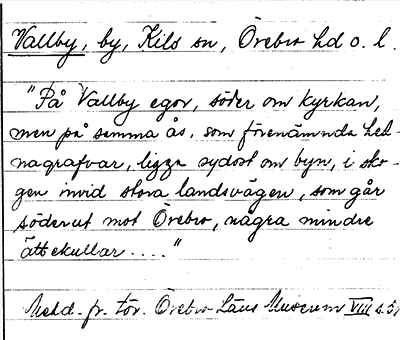 Vallby, by, Kils sn, Örebro hd o. l.
"På Vallby egor, söder om kyrkan,
men på samma ås, som förenämnda hed-
nagrafvar, ligga sydost om byn, i sko-
gen invid stora landsvägen, som går
söderut mot Örebro, några mindre
ättekullar...."
Medd. fr. för. Örebro Läns Museum VIII s. 51